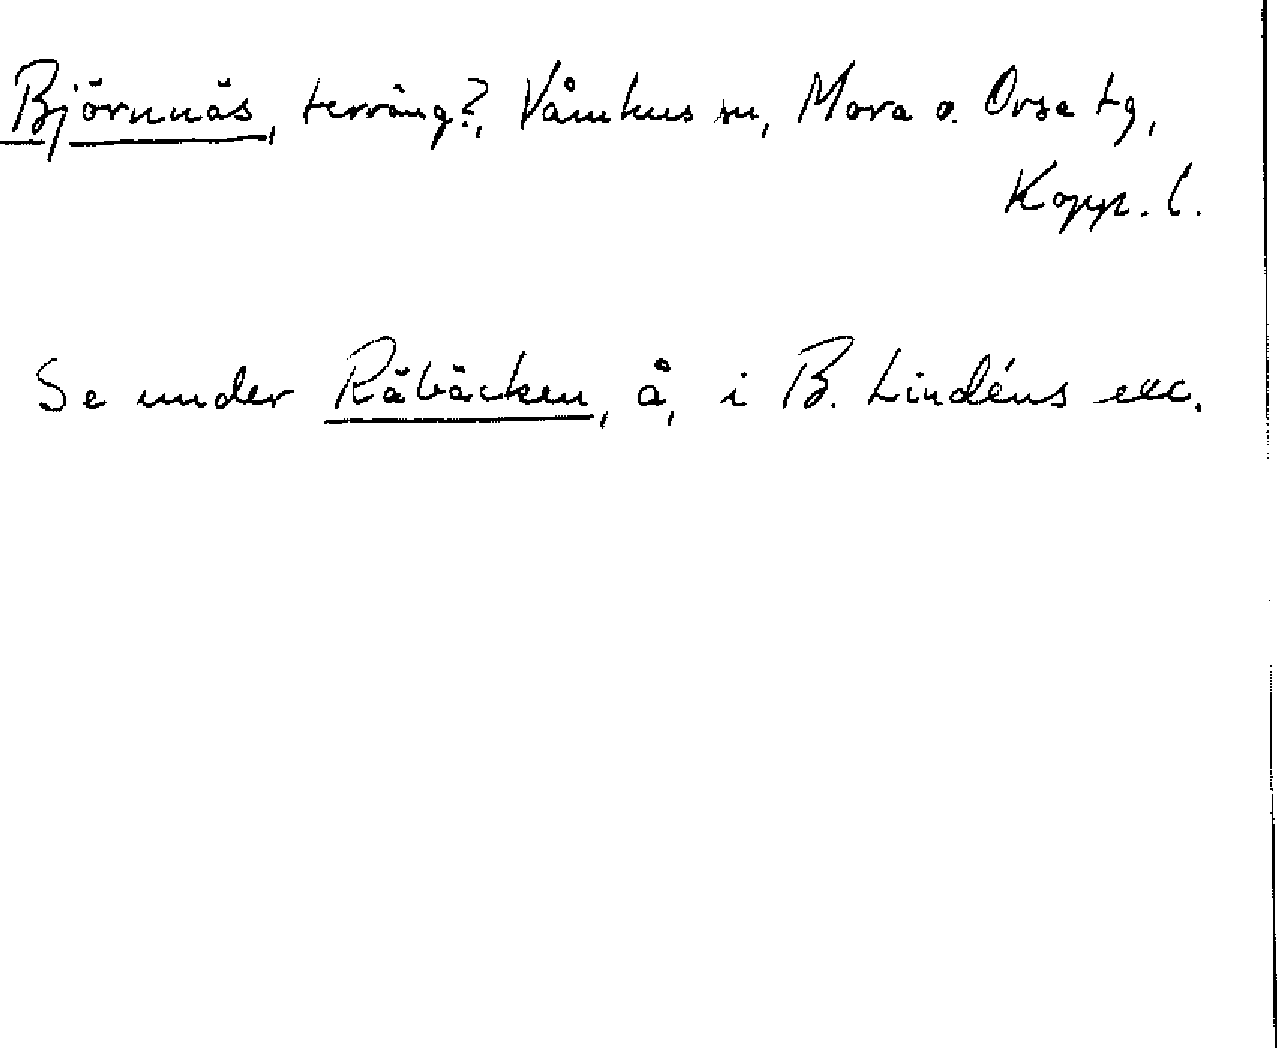 Björnnäs, terräng?, Våmhus sn, Mora o. Orsa tg,
Kopp. l.
Se under Råbäcken, å, i B. Lindéns exc.